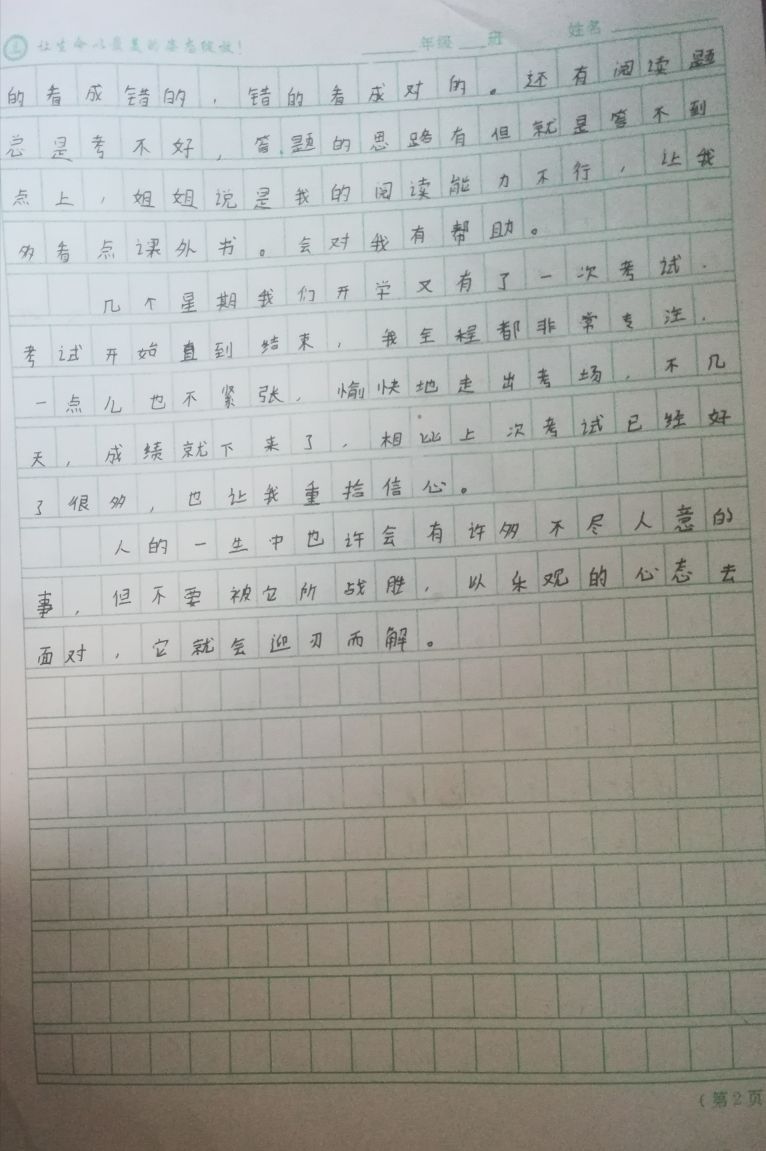 让生命以最美的姿态绽放！ ____年级___班 姓名________
的看成错的，错的看成对的。还有阅读题
总是考不好，答题的思路有但就是答不到
点上，姐姐说是我的阅读能力不行，让我
多看点课外书。会对我有帮助。
几个星期我们开学又有了一次考试．
考试开始直到结束，我全程都非常专注．
一点儿也不紧张，愉快地走出考场．不几
天，成绩就下来了，相比上次考试已经好
了很多，也让我重拾信心。
人的一生中也许会有许多不尽人意的
事，但不要被它所战胜，以乐观的心态去
面对，它就会迎刃而解。
（第2页